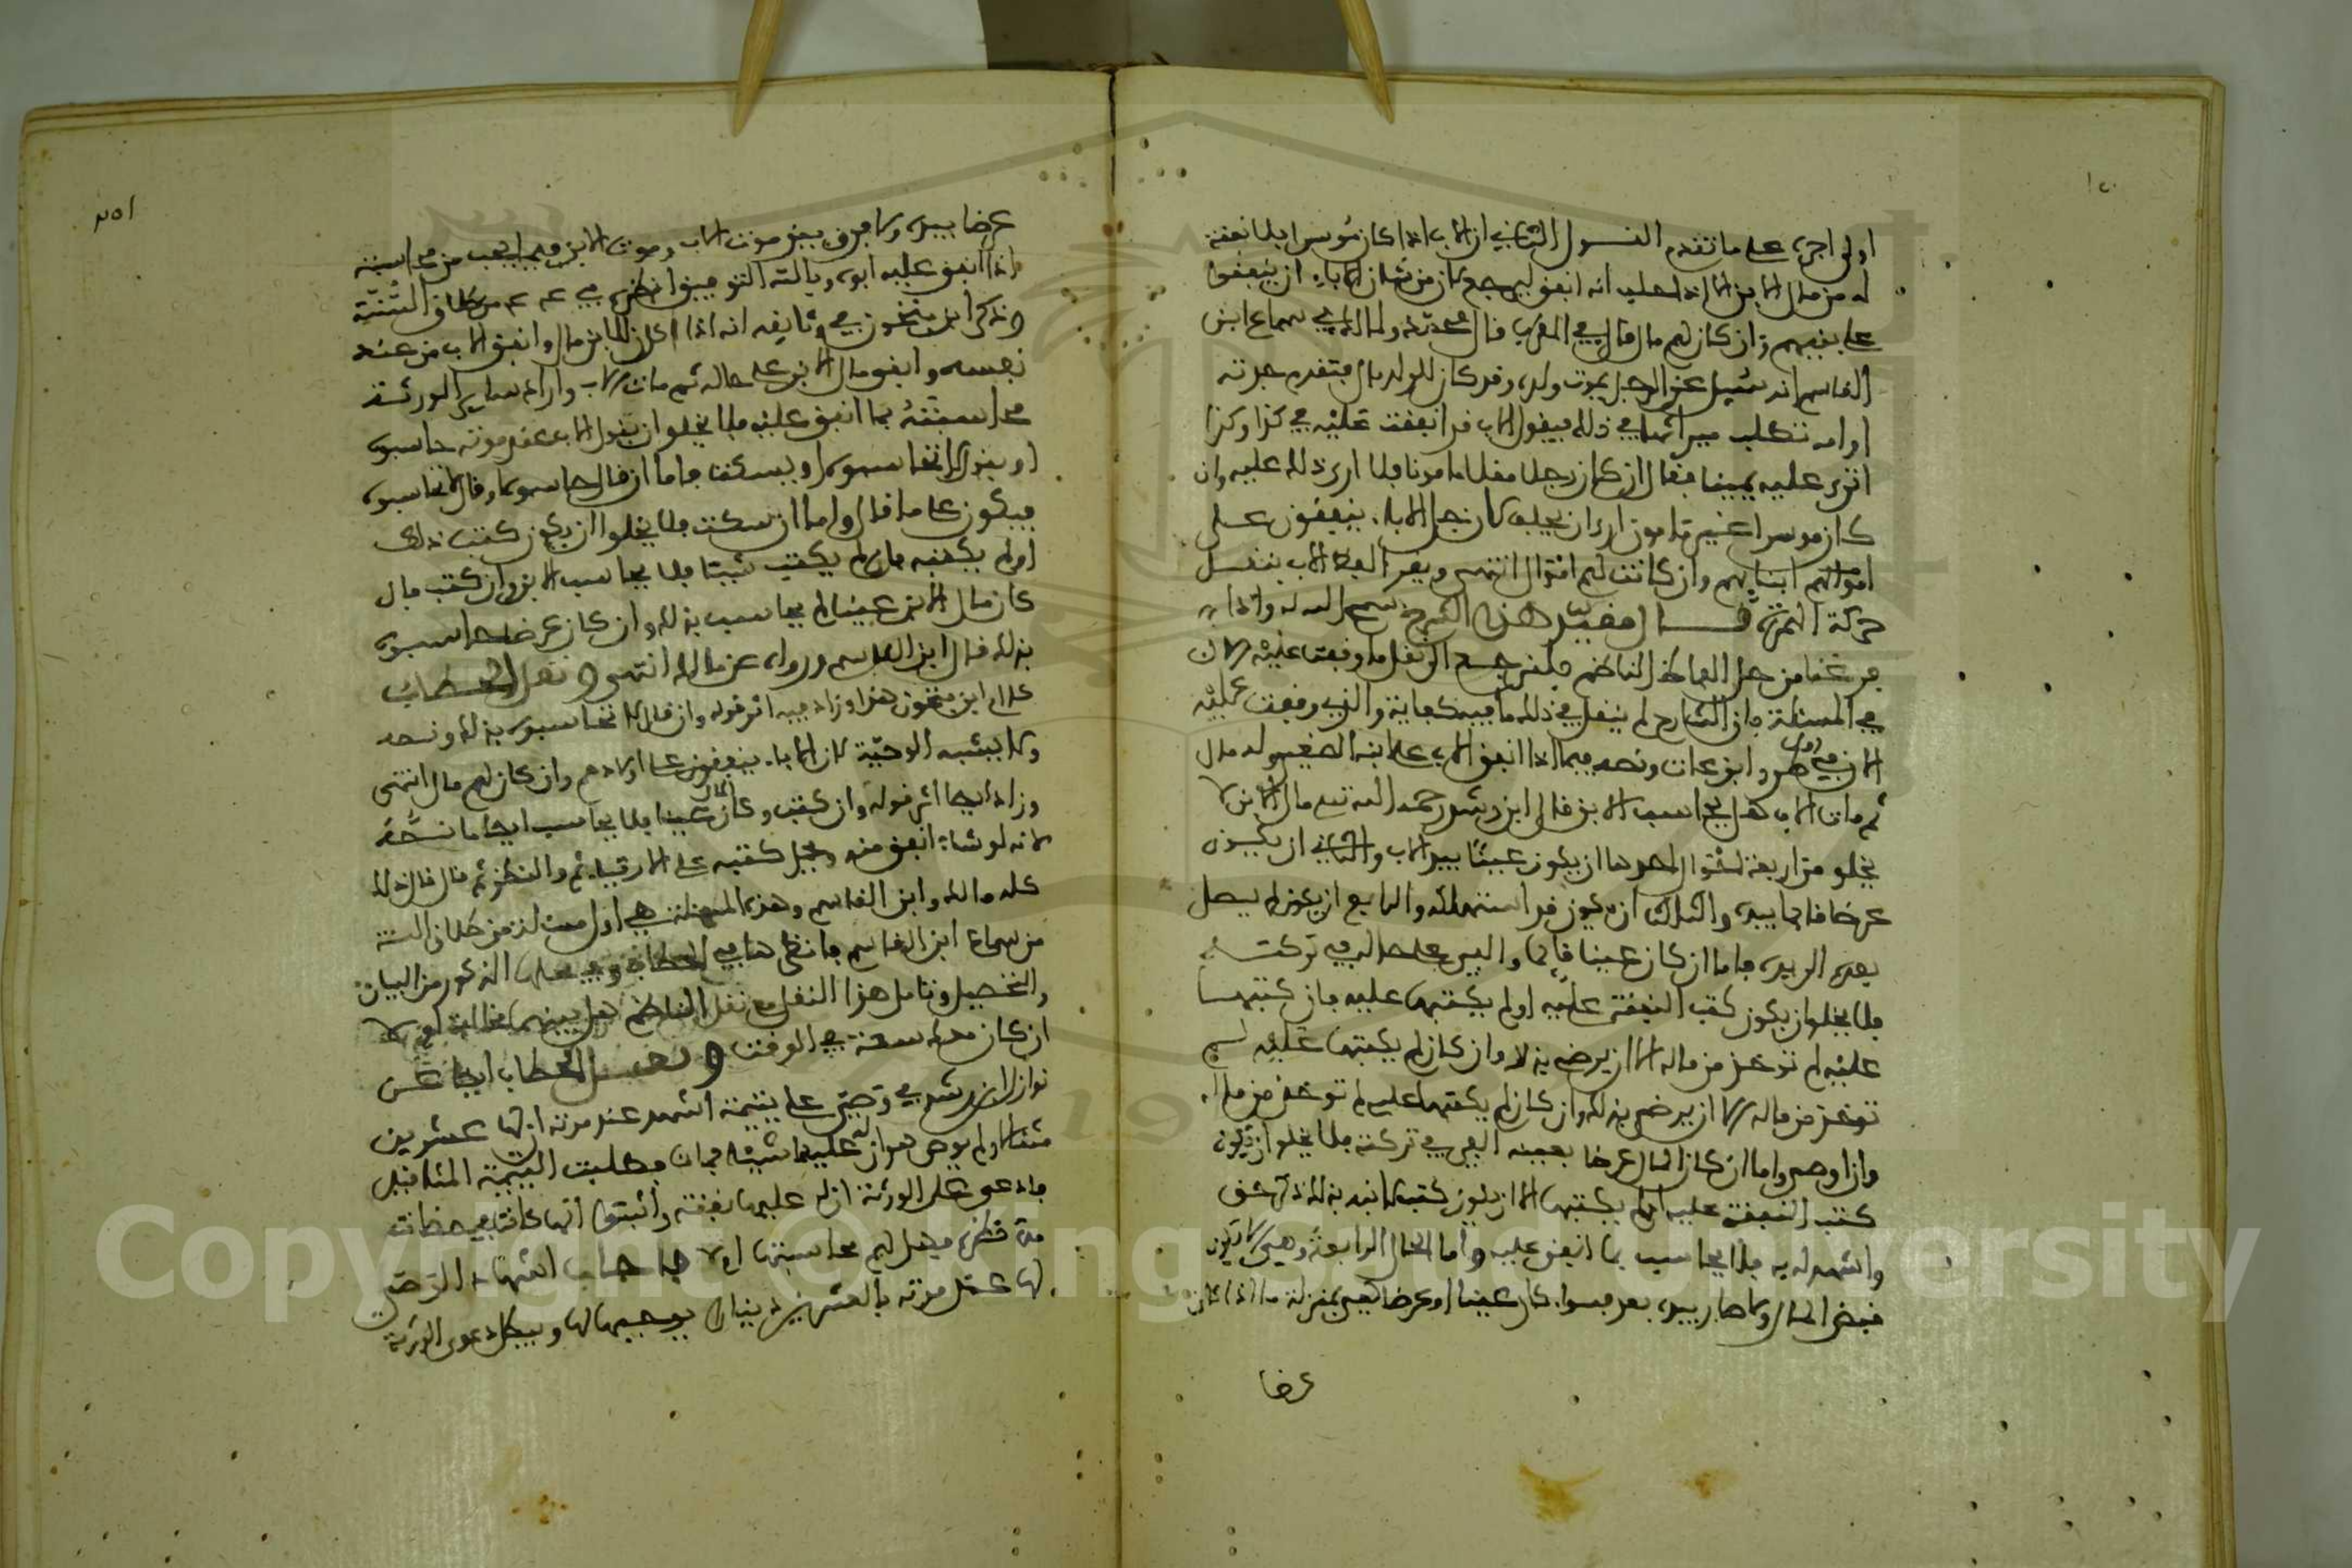 اولى اجرى على ما تقدم القول الثاني ان الاب اذا كان موسرا فلا نفقة
له من مال الابن الا اذا حلف انه انفق ليرجع لان من شان الاباء ان ينفقوا
على بنيهم وان كان لهم مال قال في المقرب قال محمد قوله ولمالك في سماع ابن
القاسم انه سئل عن الرجل يموت ولده وقد كان للولد مال فتقدم جدته
او امه تطلب ميراثها في ذلك فيقول الاب قد انفقت عليه في كذا وكذا
اترى عليه يمينا فقال ان كان رجلا مقلا مامونا فلا ارى ذلك عليه وان
كان موسرا غير مامون ارى ان يحلف لان جل الاباء ينفقون على
اموالهم ابنايهم وان كانت لهم اموال انتهى ويقرا لفظ الاب بنقل
حركة الهمزة قال مقيد هذا الشرح سمح الله له ولما
فرغنا من حل الفاظ الناظم فلنرجع الى نقل ما وقفت عليه الان
في المسئلة فان الشارح لم ينقل في ذلك ما فيه كفاية والذي وقفت عليه
الان في طرر ابن عات ونصه فيما اذا انفق الاب على ابنه الصغير وله مال
ثم مات الاب هل يحاسب الابن قال ابن رشد رحمه الله تع مال الابن لا
يخلو من اربعة احوال احدها ان يكون عينا بيد الاب والثاني ان يكون
عرضا قايما بيده والثالث ان يكون قد استهلكه والرابع ان يكون لم يصل
بعد الى يده فاما ان كان عينا قايما والفي على حاله في تركته
فلا يخلو ان يكون كتب النفقة عليه او لم يكتبها عليه فان كتبها
عليه لم توخذ من ماله الا ان يوصي بذلك وان كان لم يكتبها عليه لم
توخذ من ماله الا ان يوصي بذلك وان كان لم يكتبها عليه لم توخذ من ماله
وان اوصى واما ان كان المال عرضا بعينه الفي في تركته فلا يخلو ان يكون
كتب النفقة عليه او لم يكتبها الا ان يكون كتب لابنه بذلك ذكر حق
واشهد له به فلا يحاسب بما انفق عليه واما الحال الرابعة وهي الا يكون
قبض المال ولا صار بيده بعد فسواء كان عينا او عرضا هي بمنزلة ما اذا كان
عرضا
عرضا بيده ولا فرق بين موت الاب وموت الابن فيما يجب من محاسبته
اذا انفق عليه ابوه وبالله التوفيق انظر في من طلاق السنة
وذكر ابن سحنون في وثايقه انه اذا كان للابن مال وانفق الاب من عند
نفسه وابقى مال الابن على حاله ثم مات الاب واراد ساير الورثة
محاسبته بما انفق عليه فلا يخلو ان يقول الاب عند موته حاسبوه
او يقول لا تحاسبوه او يسكت فاما ان قال حاسبوه او قال لا تحاسبوه
فيكون على ما قال واما ان سكت فلا يخلوا ان يكون كتب ذلك
او لم يكتبه فان لم يكتب شيئا فلا يحاسب الابن وان كتب فان
كان مال الابن عينا لم يحاسب بذلك وان كان عرضا حاسبوه
بذلك قال ابن القاسم ورواه عن مالك انتهى ونقل الحطاب
كلام ابن سحنون هذا وزاد فيه اثر قوله وان قال لا تحاسبوه بذلك ونصه
ولا يشبه الوصية لان الاباء ينفقون على اولادهم وان كان لهم مال انتهى
وزاد ايضا اثر قوله وان كتب وكان المال عينا فلا يحاسب ايضا ما نصه
لانه لو شاء انفق منه ويحمل كتبه على الارتياء ثم والنظر ثم قال قال ذلك
كله مالك وابن القاسم وهذه المسئلة هي اول مسئلة من طلاق السنة
من سماع ابن القاسم فانظرها في الحطاب وفي محلها المذكور من البيان
والتحصيل وتامل هذا النقل مع نقل الناظم هل بينهما مخالفة ام لا
ان كان معك سعة في الوقت ونقل الحطاب ايضا عن
نوازل ابن رشد في وصي على يتيمة اشهد عند موته ان لها عشرين
مثقالا ولم يوص هو ان له عليها شيئا فمات فطلبت اليتيمة المثاقيل
فادعى عليه الورثة ان له عليها نفقة واثبتوا انها كانت في حضانته
مدة نظره فهل لهم محاسبتها ام لا فاجاب اشهاد الوصي
لها عند موته بالعشرين دينارا يوجبها لها ويبطل دعوى الورثة